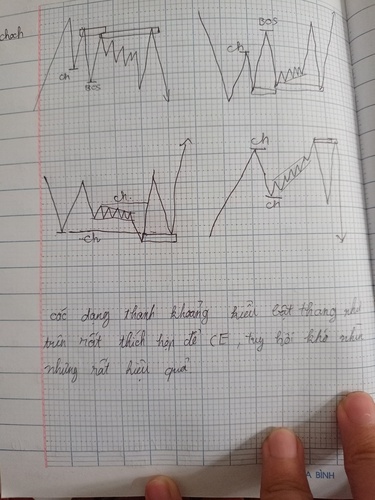 choch
BOS
ch
ch
BOS
ch
ch
ch
ch
các dạng thanh khoảng kiểu bật thang như
trên rất thích hợp để CE, tuy hơi khó nhìn
nhưng rất hiệu quả
A BÌNH